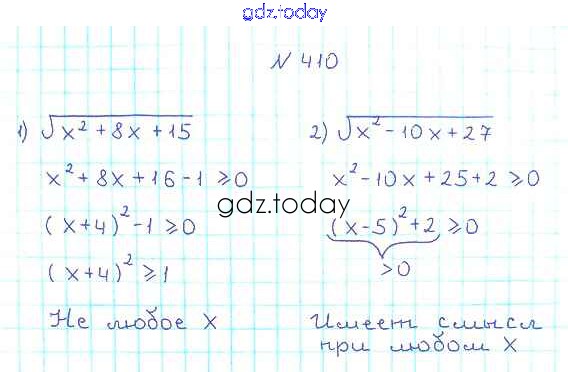 gdz.today
№ 410
1) √x² + 8x + 15
x² + 8x + 16 - 1 ⩾ 0
(x + 4)² - 1 ⩾ 0
(x + 4)² ⩾ 1
Не любое x
2) √x² - 10x + 27
x² - 10x + 25 + 2 ⩾ 0
(x - 5)² + 2 ⩾ 0
> 0
Имеет смысл
при любом x
gdz.today